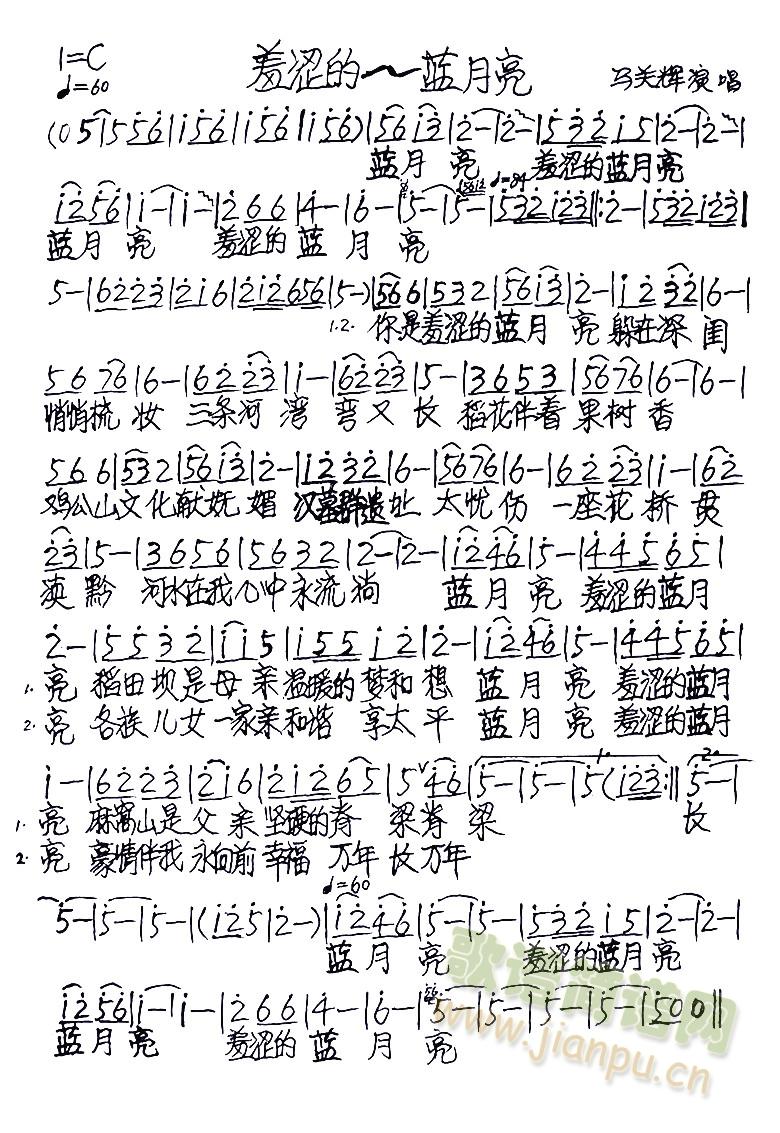 1=C
♩=60
羞涩的～蓝月亮
马关辉演唱
(0 5|5 5 6|i 5 6|i 5 6|i 5 6)|5 6 i 3|2 -|2 -|5 3 2 i 5|2 -|2 -|
蓝月 亮 羞涩的蓝月亮
♩=84
i 2 5 6|i -|i -|2 6 6|4 -|6 -|5 -|5 -|5 3 2 i 2 3‖:2 -|5 3 2 i 2 3|
蓝月 亮 羞涩的 蓝 月 亮
5 -|6 2 2 3|2 i 6|2 i 2 6 5 6|5 -)|5 6 6|5 3 2|5 6 i 3|2 -|i 2 3 2|6 -|
1.2. 你是羞涩的蓝月 亮 躲在深 闺
5 6 7 6|6 -|6 2 2 3|i -|6 2 2 3|5 -|3 6 5 3|5 6 7 6|6 -|6 -|
悄悄梳 妆 三条河 湾 弯又 长 稻花伴着 果树 香
5 6 6|5 3 2|5 6 i 3|2 -|i 2 3 2|6 -|5 6 7 6|6 -|6 2 2 3|i -|6 2
鸡公山文化献妩 媚 汉墓群遗址 太忧 伤 一座花 桥 贯
2 3|5 -|3 6 5 6|5 6 3 2|2 -|2 -|i 2 4 6|5 -|4 4 5 6 5|
滇 黔 河水在我心中永流淌 蓝 月 亮 羞涩的蓝月
2 -|5 5 3 2|i i 5|i 5 5 i 2|2 -|i 2 4 6|5 -|4 4 5 6 5|
1. 亮 稻田坝是母 亲温暖的 梦和 想 蓝 月 亮 羞涩的蓝月
2. 亮 各族儿女一家亲和谐 享太 平 蓝 月 亮 羞涩的蓝月
i -|6 2 2 3|2 i 6|2 i 2 6 5|5 ∨ 4 6|5 -|5 -|5 (i 2 3:‖5 -|
1. 2.
1. 亮 麻窝山是父 亲坚硬的脊 梁脊 梁 长
2. 亮 豪情伴我永向前幸福 万年长万年
♩=60
5 -|5 -|5 -|(i 2 5|2 -)|i 2 4 6|5 -|5 -|5 3 2 i 5|2 -|2 -|
蓝 月 亮 羞涩的蓝月亮
i 2 5 6|i -|i -|2 6 6|4 -|6 -|5 -|5 -|5 -|5 -|5 0 0‖
蓝月 亮 羞涩的 蓝 月 亮
歌谱简谱网
www.jianpu.cn